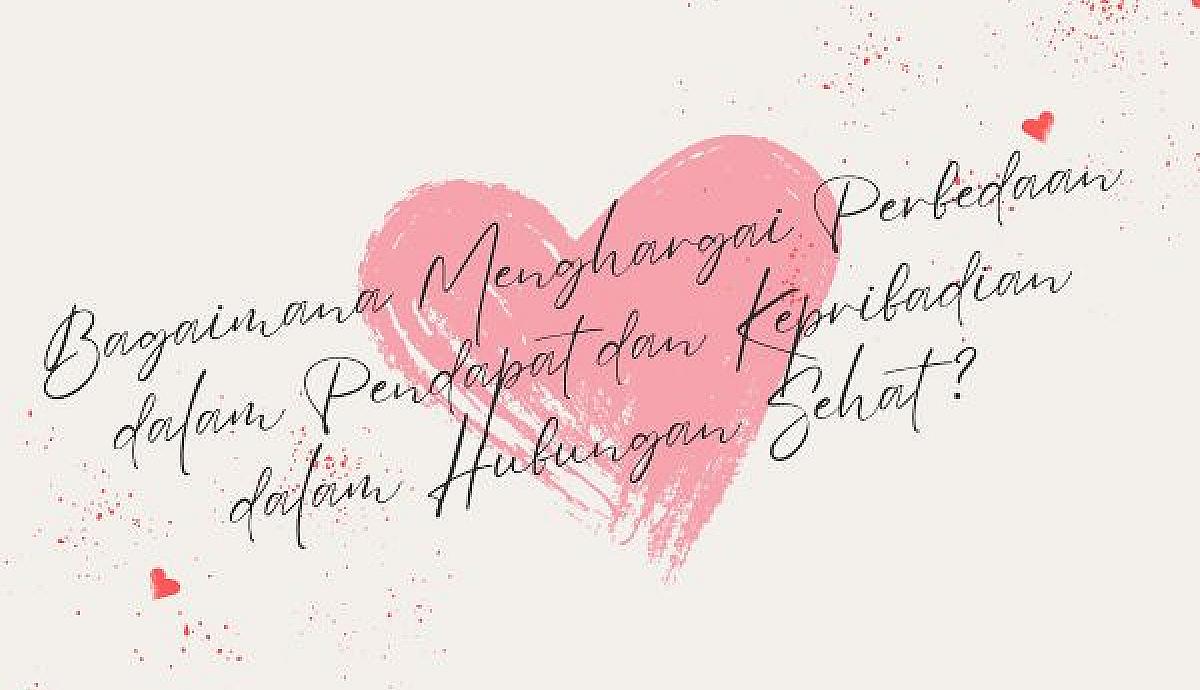 Bagaimana Menghargai Perbedaan
dalam Pendapat dan Kepribadian
dalam Hubungan Sehat?